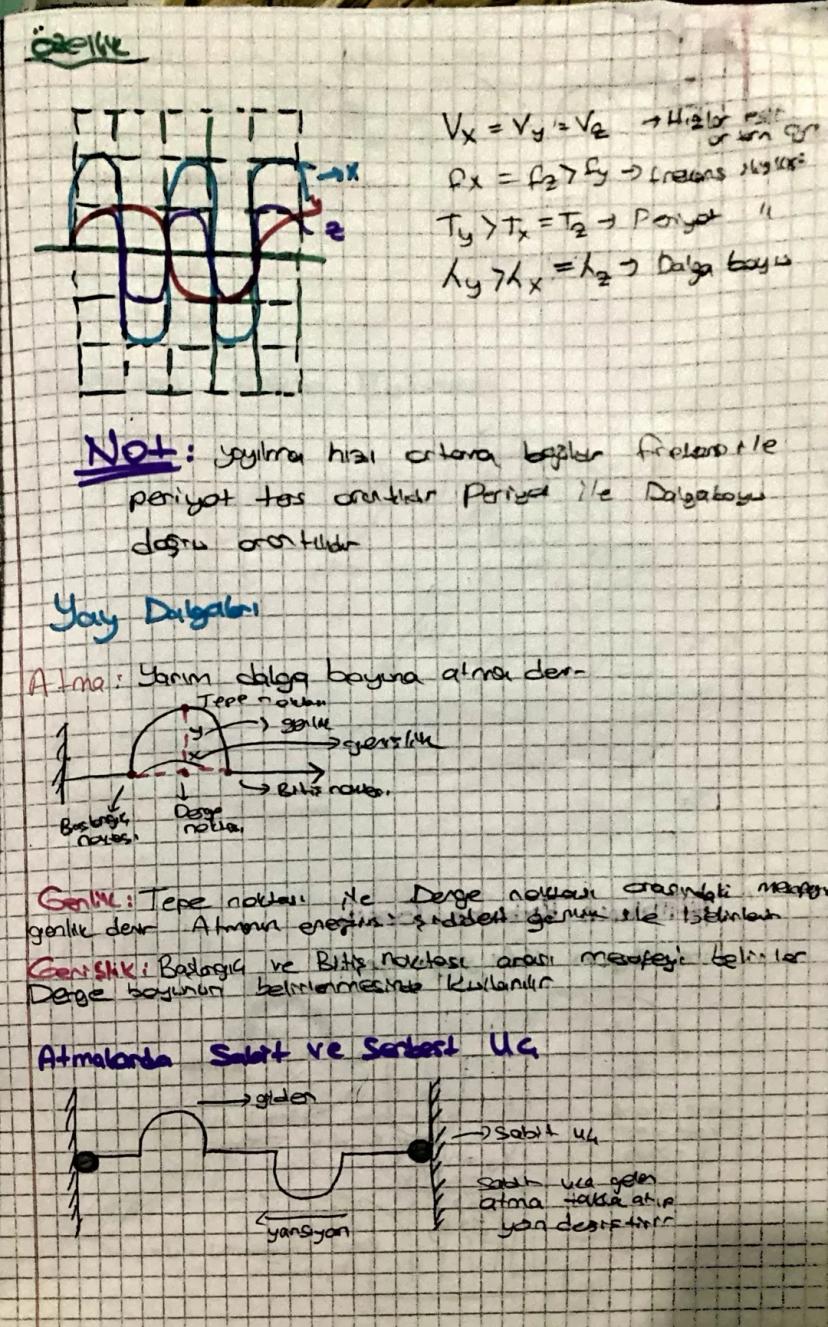 Özellik
Vx = Vy = Vz → Hızlar eşit
fx = fz > fy → frekans
Ty > Tx = Tz → Periyot "
λy > λx = λz → Dalga boyu
x
z
Not: yayılma hızı ortama bağlıdır frekans ile
periyot ters orantılıdır Periyot ile Dalgaboyu
doğru orantılıdır
Yay Dalgaları
Atma: Yarım dalga boyuna atma denir
Tepe noktası
y → genlik
x → genişlik
Bitiş noktası
Başlangıç noktası
Denge noktası
Genlik: Tepe noktası ile Denge noktası arasındaki mesafeye
genlik denir Atmanın enerjisini şiddeti genlik ile
Genişlik: Başlangıç ve Bitiş noktası arası mesafeyi belirler
Denge boyunun belirlenmesinde kullanılır
Atmalarda Sabit ve Serbest Uç
→ giden
→ Sabit uç
Sabit uca gelen
atma takla atıp
yön değiştirir
yansıyan